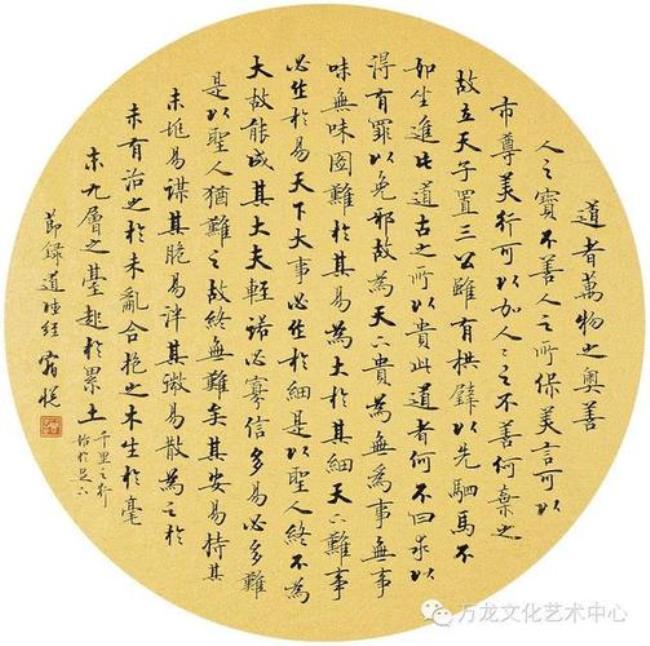 道者萬物之奥善
人之寶不善人之所保美言可以
市尊美行可以加人々之不善何棄之
故立天子置三公雖有拱璧以先駟馬不
如坐進此道古之所以貴此道者何不曰求以
得有罪以免邪故為天下貴為無為事無事
味無味圖難於其易為大於其細天下難事
必作於易天下大事必作於細是以聖人終不為
大故能成其大夫輕諾必寡信多易必多難
是以聖人猶難之故終無難矣其安易持其
未兆易謀其脆易泮其微易散為之於
未有治之於未亂合抱之木生於毫
末九層之臺起於累土
千里之行
始於足下
節錄道德經
万龙文化艺术中心